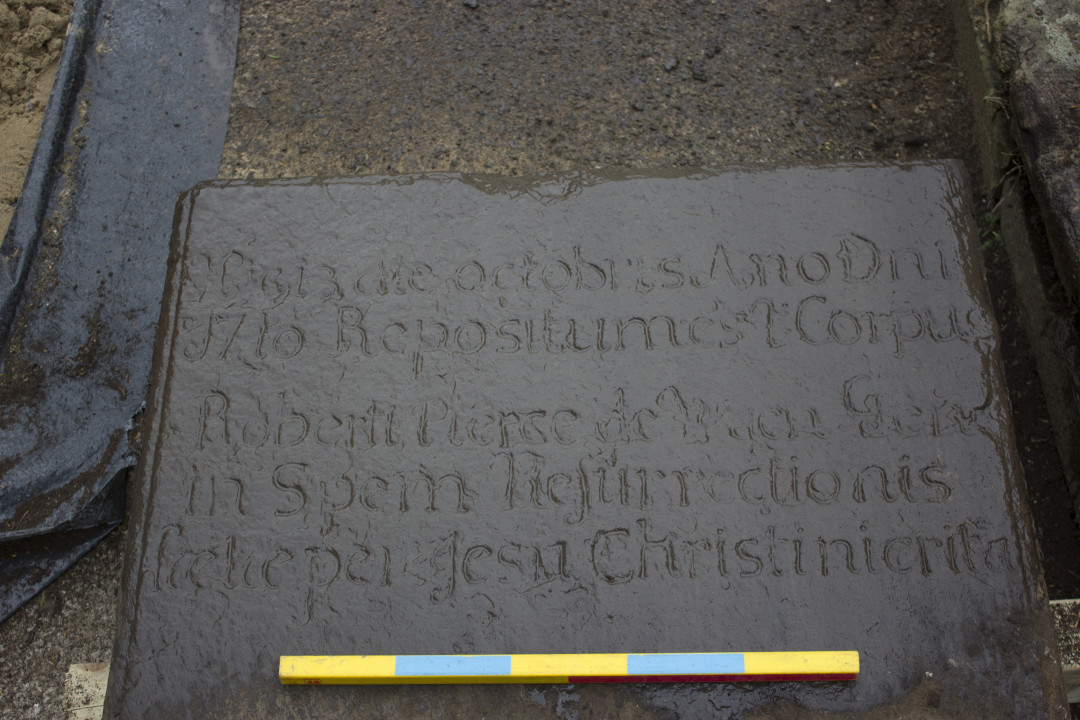 die octobris Ano Dni
1710 Repositum est Corpus
Roberti Pierce de
in Spem Resurrectionis
per Jesu Christi merita